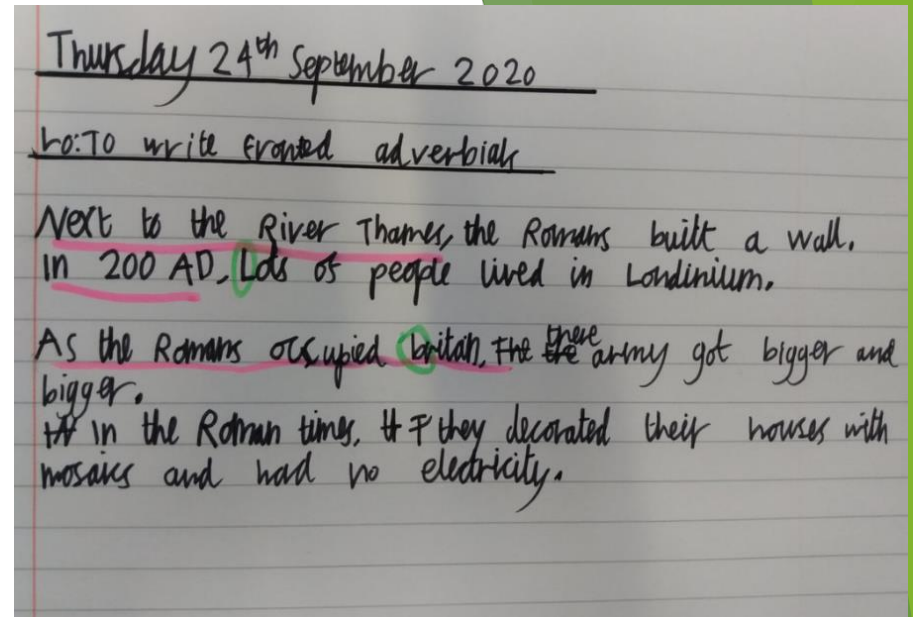 Thursday 24th September 2020
Lo: To write fronted adverbials
Next to the River Thames, the Romans built a wall.
In 200 AD, Lots of people lived in Londinium.
As the Romans occupied britain, there army got bigger and
bigger.
in the Roman times, they decorated their houses with
mosaics and had no electricity.